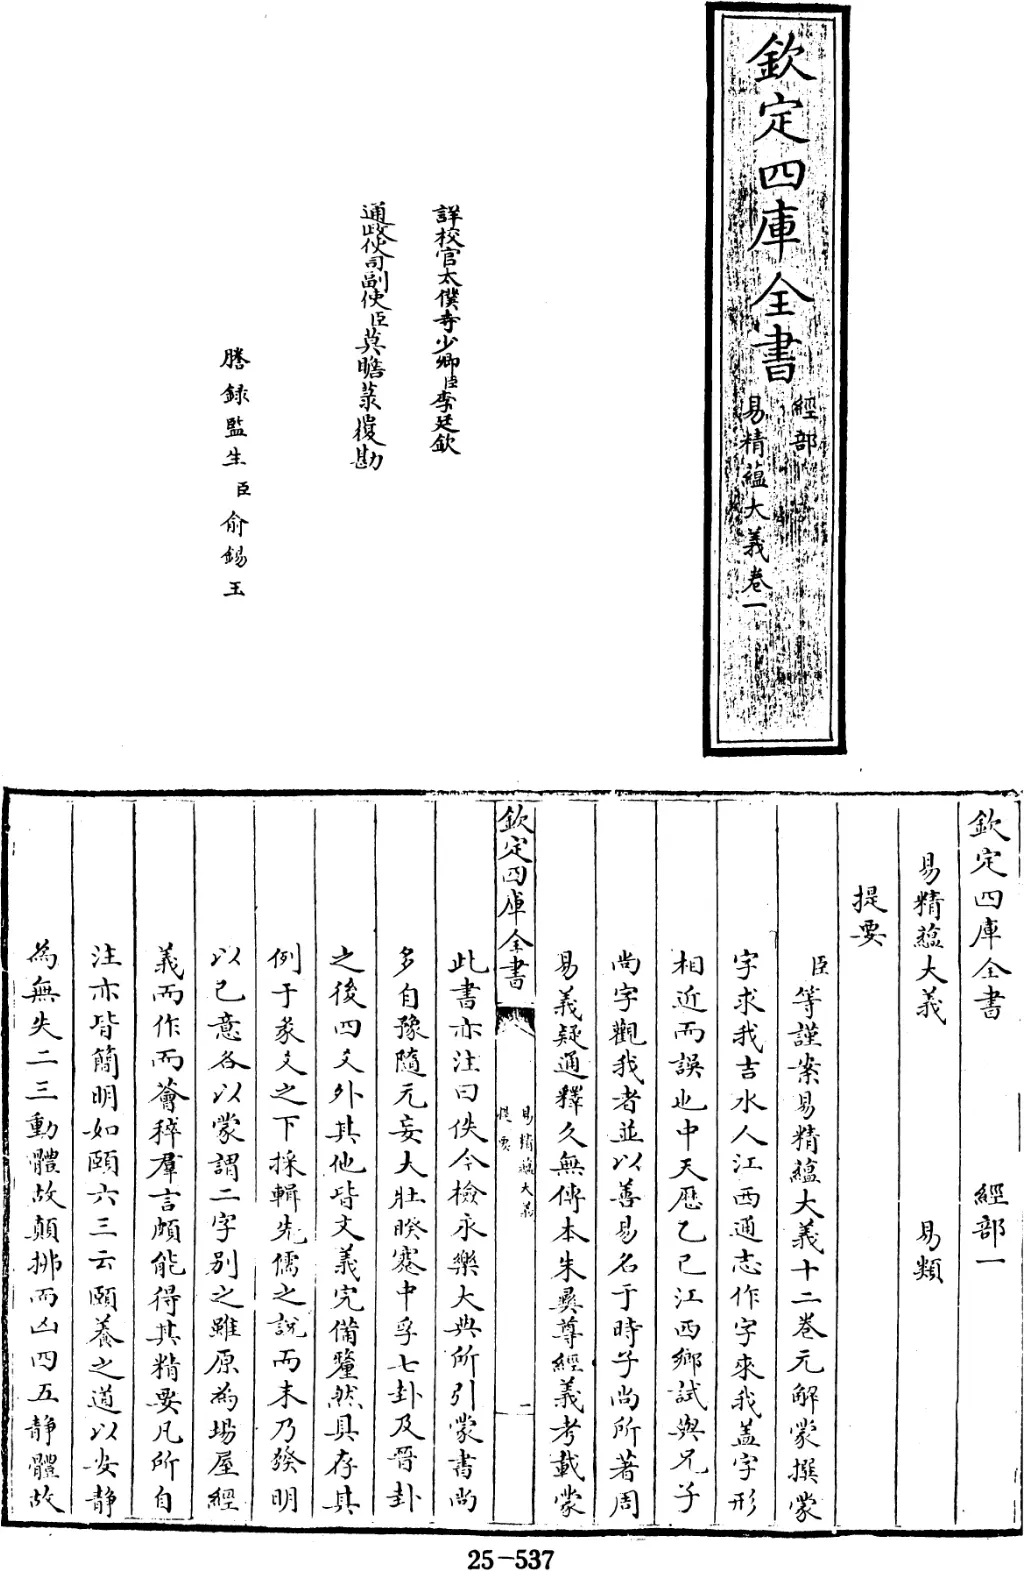 欽定四庫全書
經部
易精藴大義卷一
詳校官太僕寺少卿臣李廷欽
通政使司副使臣莫瞻菉覆勘
謄録監生臣俞錫玉
欽定四庫全書 經部一
易精藴大義 易類
提要
臣等謹案易精藴大義十二卷元解蒙撰蒙
字求我吉水人江西通志作字來我盖字形
相近而誤也中天厯乙巳江西鄉試與兄子
尚字觀我者並以善易名于時子尚所著周
易義疑通釋久無傳本朱彞尊經義考載蒙
欽定四庫全書
易精藴大義
提要
二
此書亦注曰佚今檢永樂大典所引蒙書尚
多自豫隨无妄大壯睽蹇中孚七卦及晉卦
之後四爻外其他皆文義完備釐然具存其
例于彖爻之下採輯先儒之説而末乃發明
以己意各以蒙謂二字别之雖原為場屋經
義而作而薈稡羣言頗能得其精要凡所自
注亦皆簡明如頤六三云頤養之道以安静
為無失二三動體故顛拂而凶四五静體故
25-537